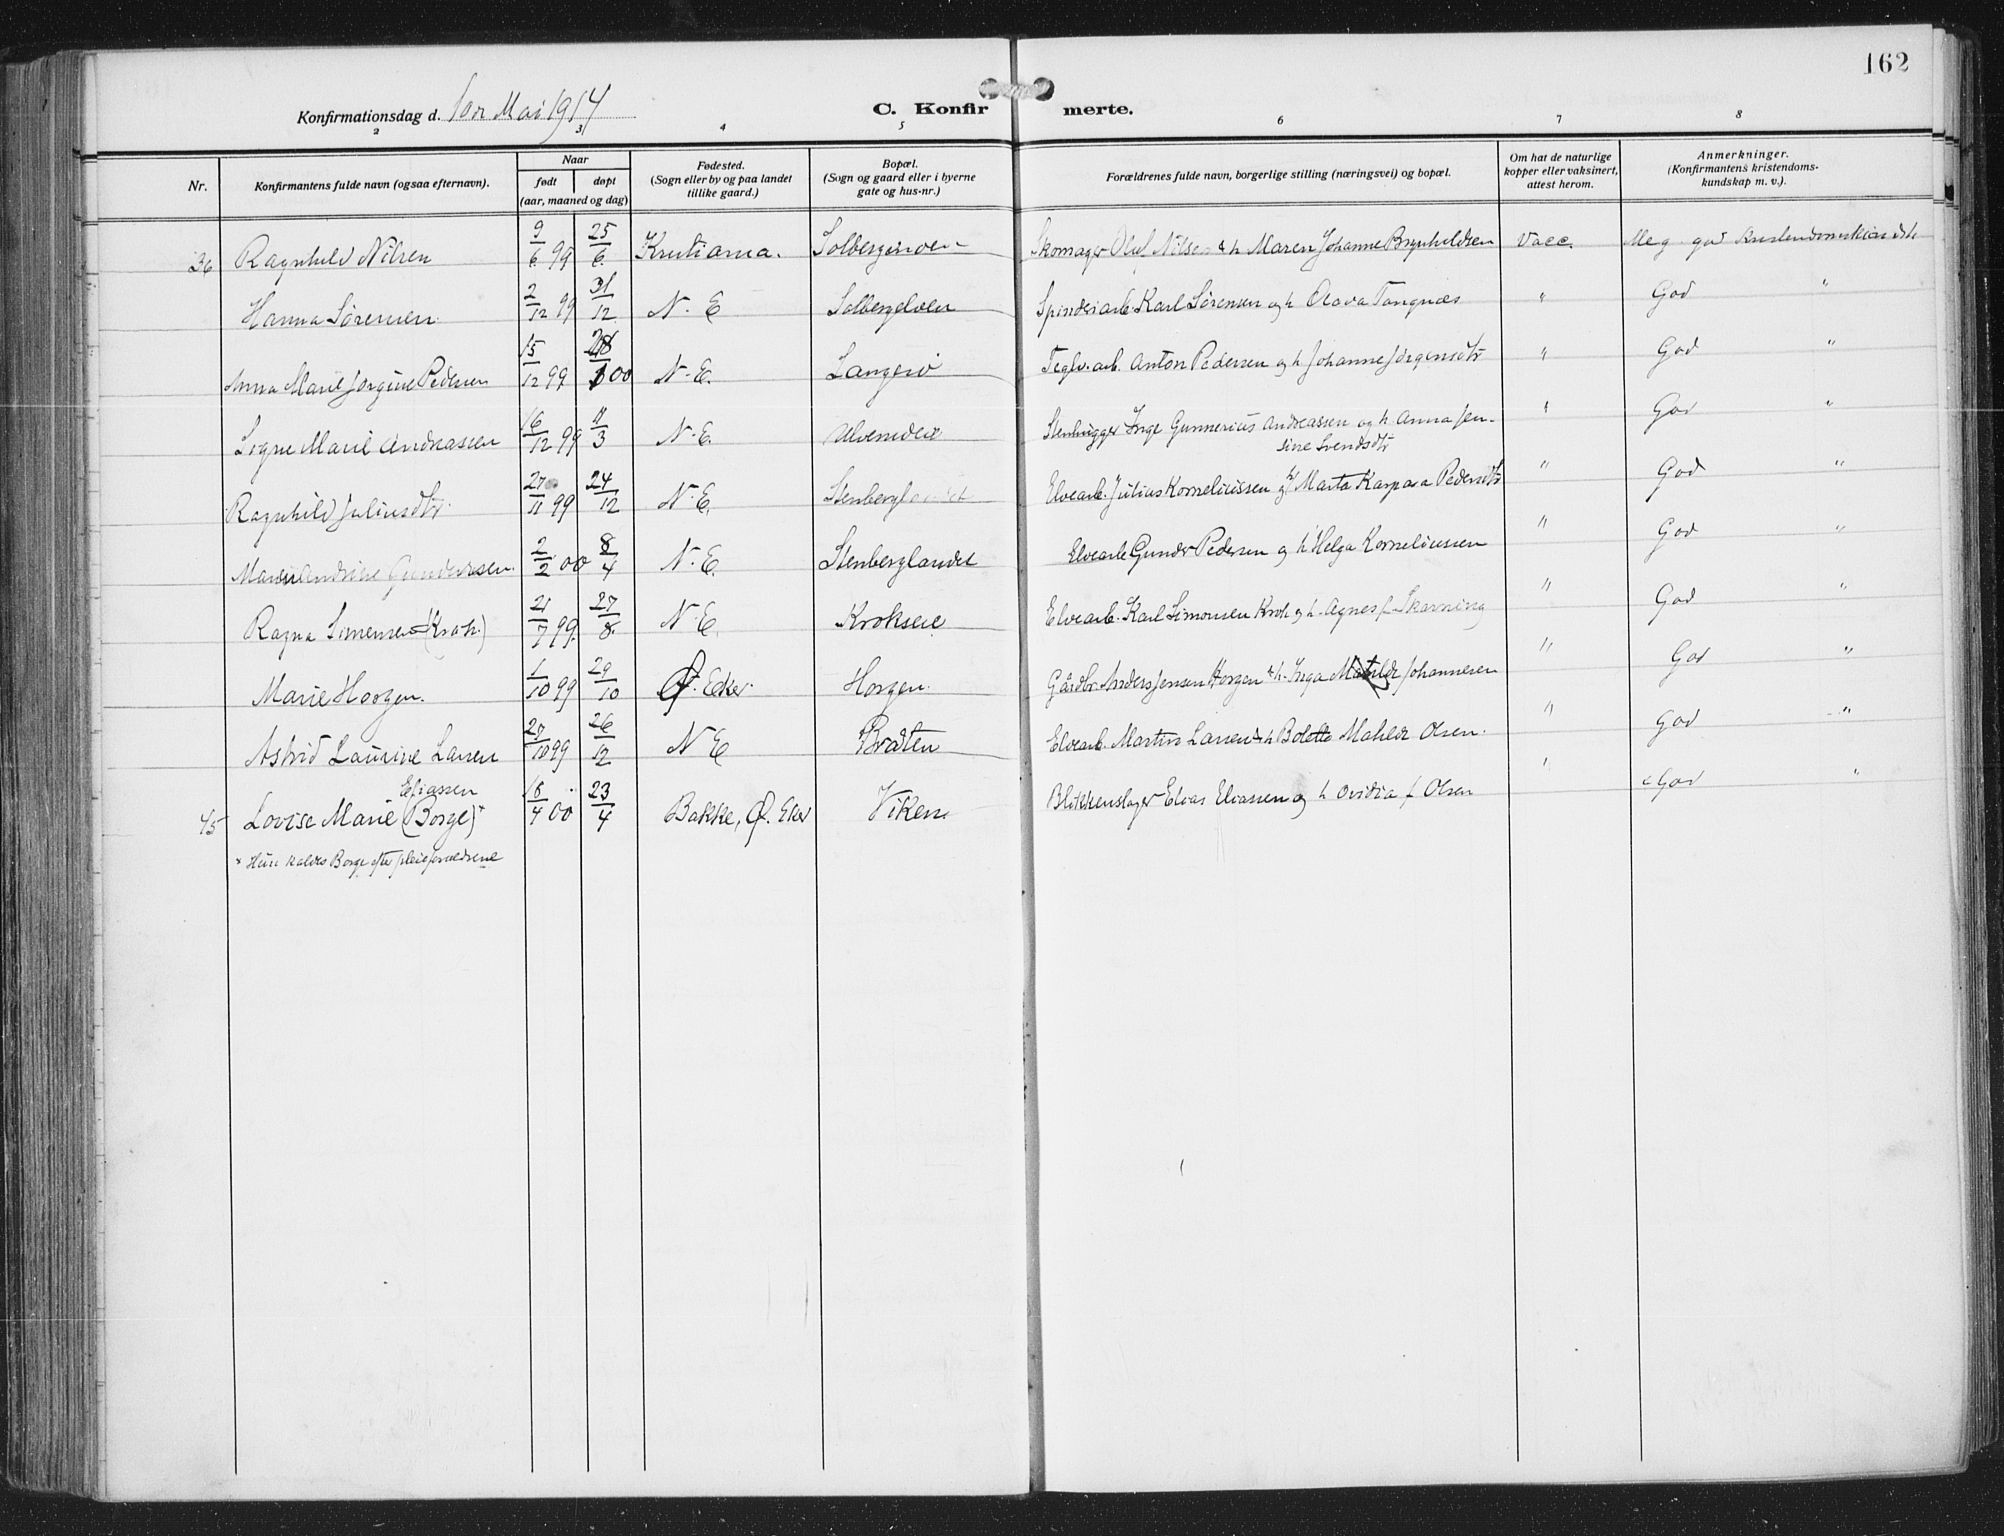 162
Konfirmationsdag d. 10de Mai 1914
C. Konfirmerte.
2 3 4 5 6 7 8
Nr. Konfirmantens fulde navn (ogsaa efternavn). Naar født døpt (aar, maaned og dag) Fødested. (Sogn eller by og paa landet tillike gaard.) Bopæl. (Sogn og gaard eller i byerne gate og hus-nr.) Forældrenes fulde navn, borgerlige stilling (næringsvei) og bopæl. Om hat de naturlige kopper eller vaksinert, attest herom. Anmerkninger. (Konfirmantens kristendoms-kundskap m. v.).
36 Ragnhild Nilsen 9/6 99 25/6 Kristiania. Skomager Oluf Nilsen & h Maren Johanne Brynhildsen Vacc. Meg. god
Hanna Sørensen 2/12 99 31/12 N. E Solbergelven Spinderiarb. Karl Sørensen og h Olava Tangnæs " God "
Anna Marie Jørgine Pedersen 15/12 99 1 00 N. E. Teglv. arb. Anton Pedersen og h Johanne Jørgensdtr " God "
Signe Marie Andreassen 16/12 99 11/3 N. E. Stenhugger Inge Gunnerius Andreassen og h Anna Jen-
sine Svendsdtr " God "
Ragnhild Juliusdtr. 27/11 99 24/12 N. E. Stenberglandet Elvearb. Julius Korneliussen og h Marta Pedersdtr " God "
Maren Andrine Gundersen. 2/2 00 8/4 N. E. Stenberglandet Elvearb Gunder Pedersen og h Helga Korneliussen " God "
Ragna Simensen (Kroh.) 21/7 99. 27/8. N. E. Krokseie Elvearb. Karl Simonsen Kroh og h. Agnes f. Skavning " God "
Marie Horgen. 1/10 99 29/10 Ø. Eker. Horgen. Gårdbr. Anders Jensen Horgen & h. Inga Matilde Johannesen " God "
Astrid Laurine Larsen 27/10 99 26/12 N E Bråten Elvearb. Martin Larsen & h Bolette Olsen. " God "
45 Lovise Marie Eliassen (Borge)* 18/4 00 23/4 Bakke, Ø. Eker Viken. Blikkenslager Elias Eliassen og h Ovidia f Olsen " God "
* Hun kaldes Borge efter pleieforældrene